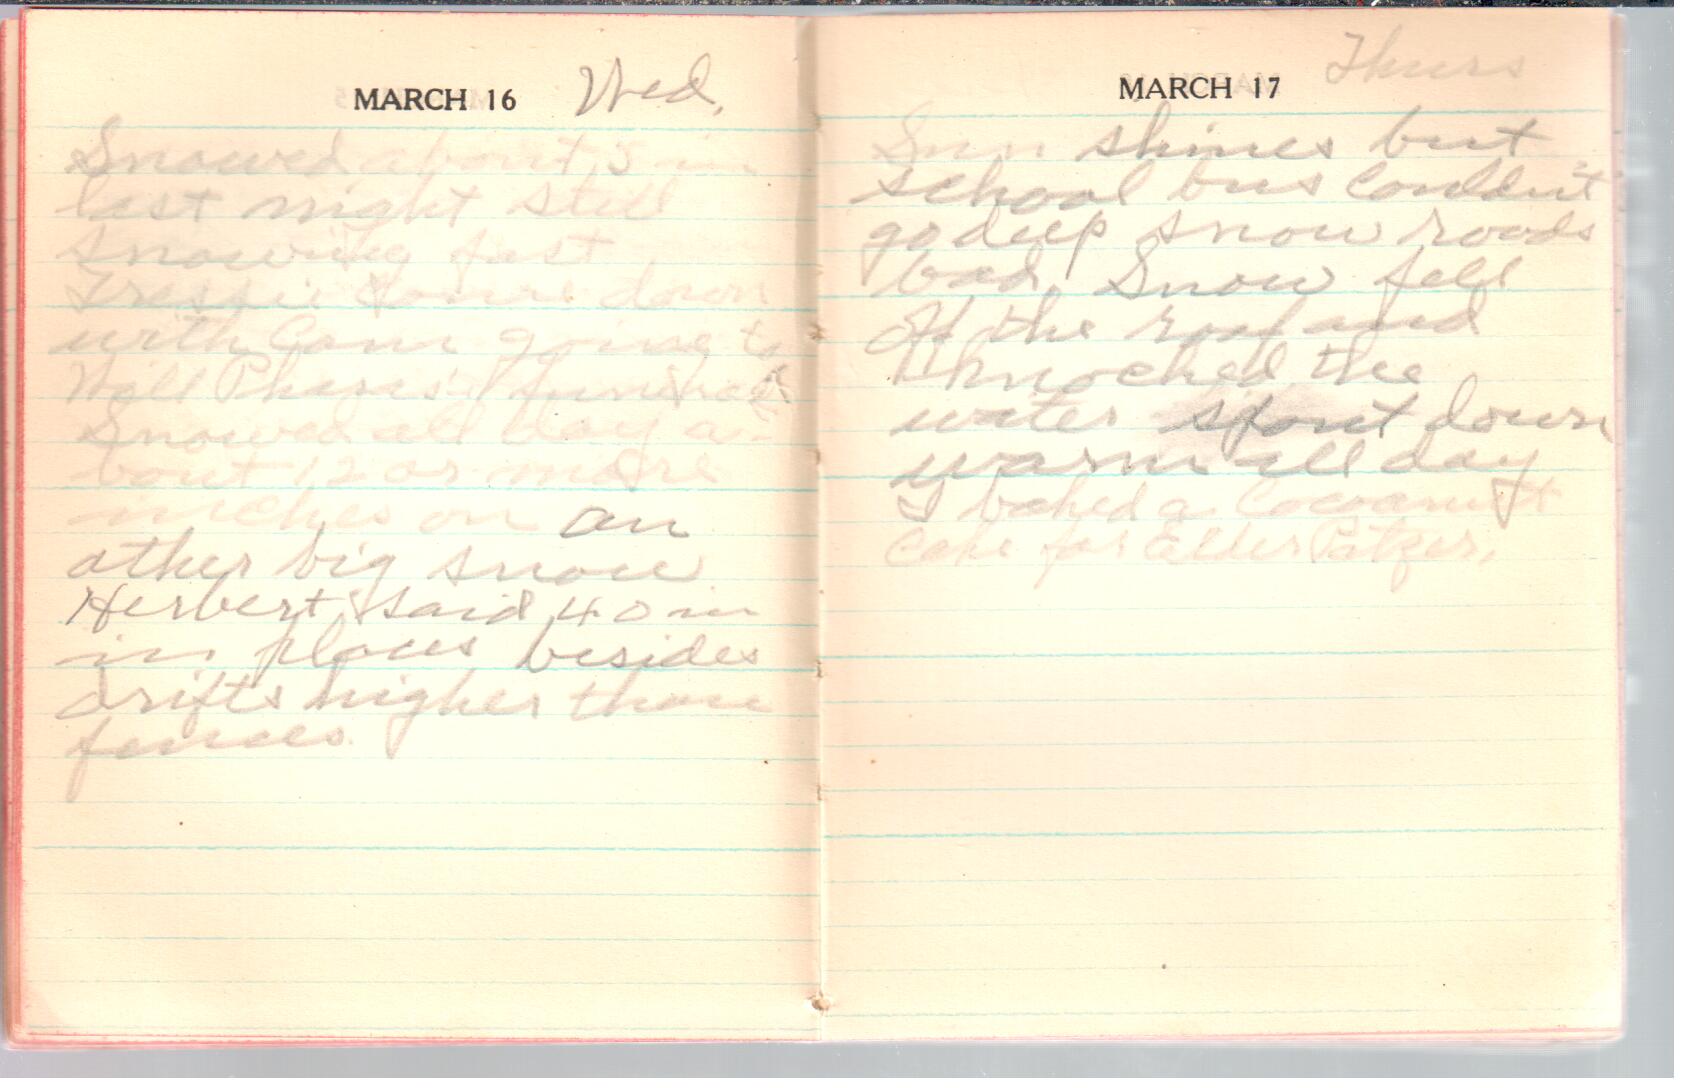 MARCH 16 Wed.
Snowed about 5 in
last night still
snowing fast
Tressie & down
with Cam going to
Will Phares' funeral
Snowed all day a-
bout 12 or more
inches on an
other big snow
Herbert said 40 in
in places besides
drifts higher than
fences.
MARCH 17 Thurs
Sun shines but
school bus couldn't
go deep snow roads
bad. Snow fell
off the roof and
knocked the
water spout down
warm all day
I baked a Cocoanut
Cake for Elder Patzer.